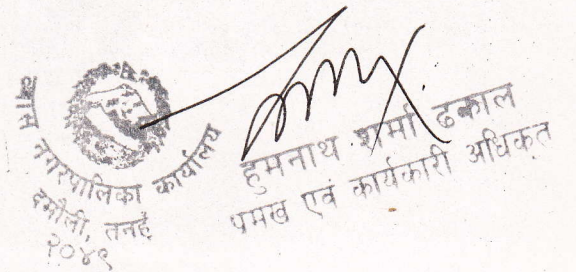 व्यास नगरपालिका कार्यालय
दमौली, तनहुँ
२०४९
हुमनाथ शर्मा ढकाल
प्रमुख एवं कार्यकारी अधिकृत